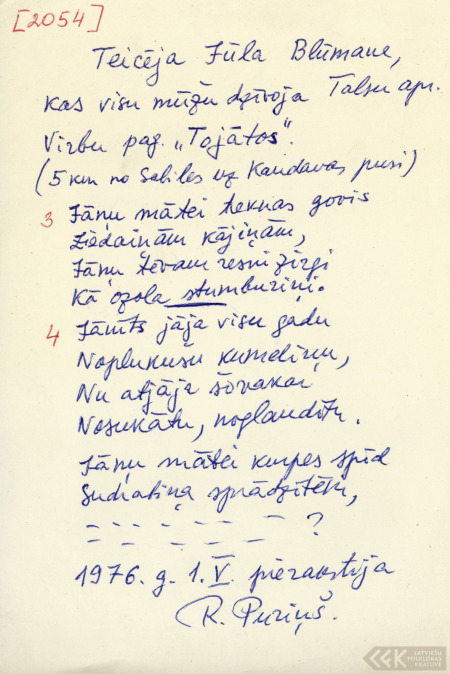 [2054]
Teicēja Jūla Blūmane,
kas visu mūžu dzīvoja Talsu apr.
Virbu pag. „Tojātos".
(5 km no Sabiles uz Kandavas pusi)
3 Jāņu mātei teknas govis
Ziedaiņām kājiņām,
Jāņu tēvam resni zirgi
Kā ozola stumburiņi.
4 Jānīts jāja visu gadu
Noplukušu kumeliņu,
Nu atjāja šovakar
Nosukātu, noglaudītu.
Jāņu mātei kurpes spīd
Sudrabiņa sprādzītēm,
– – – – – – ?
– – – – –
1976. g. 1. V. pierakstīja
R. Puriņš.
LATVIEŠU
FOLKLORAS
KRĀTUVE